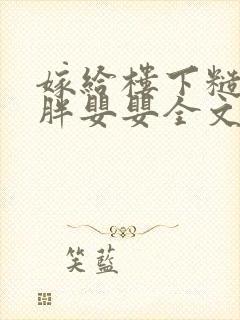 嫁给楼下糙
胖婴婴全文
笑蓝